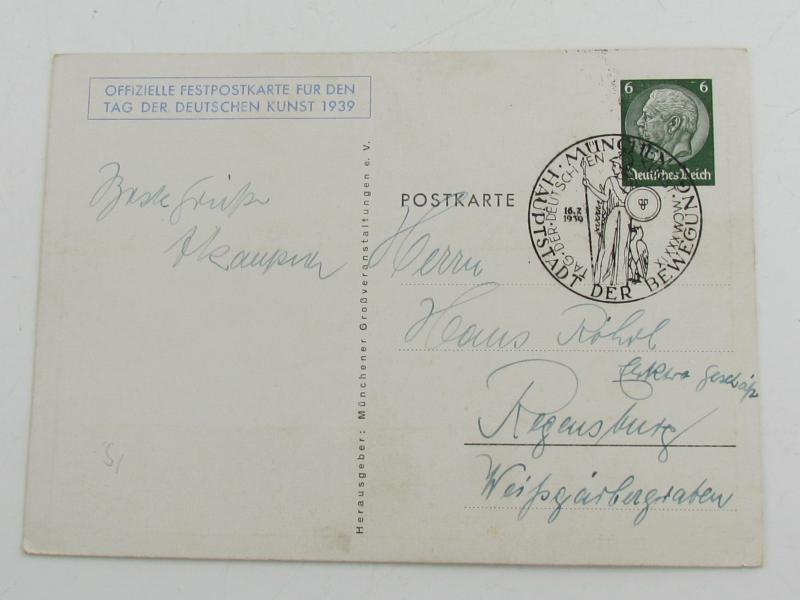 OFFIZIELLE FESTPOSTKARTE FÜR DEN
TAG DER DEUTSCHEN KUNST 1939
Beste Grüße
6 6
Deutsches Reich
MÜNCHEN
HAUPTSTADT DER BEWEGUNG
TAG·DER·DEUTSCHEN
MCMXXXIX
16.7.
1939
POSTKARTE
Herrn
Hans Röhrl
Elektro Geschäft
Regensburg
Weißgärbergraben
Herausgeber: Münchener Großveranstaltungen e. V.